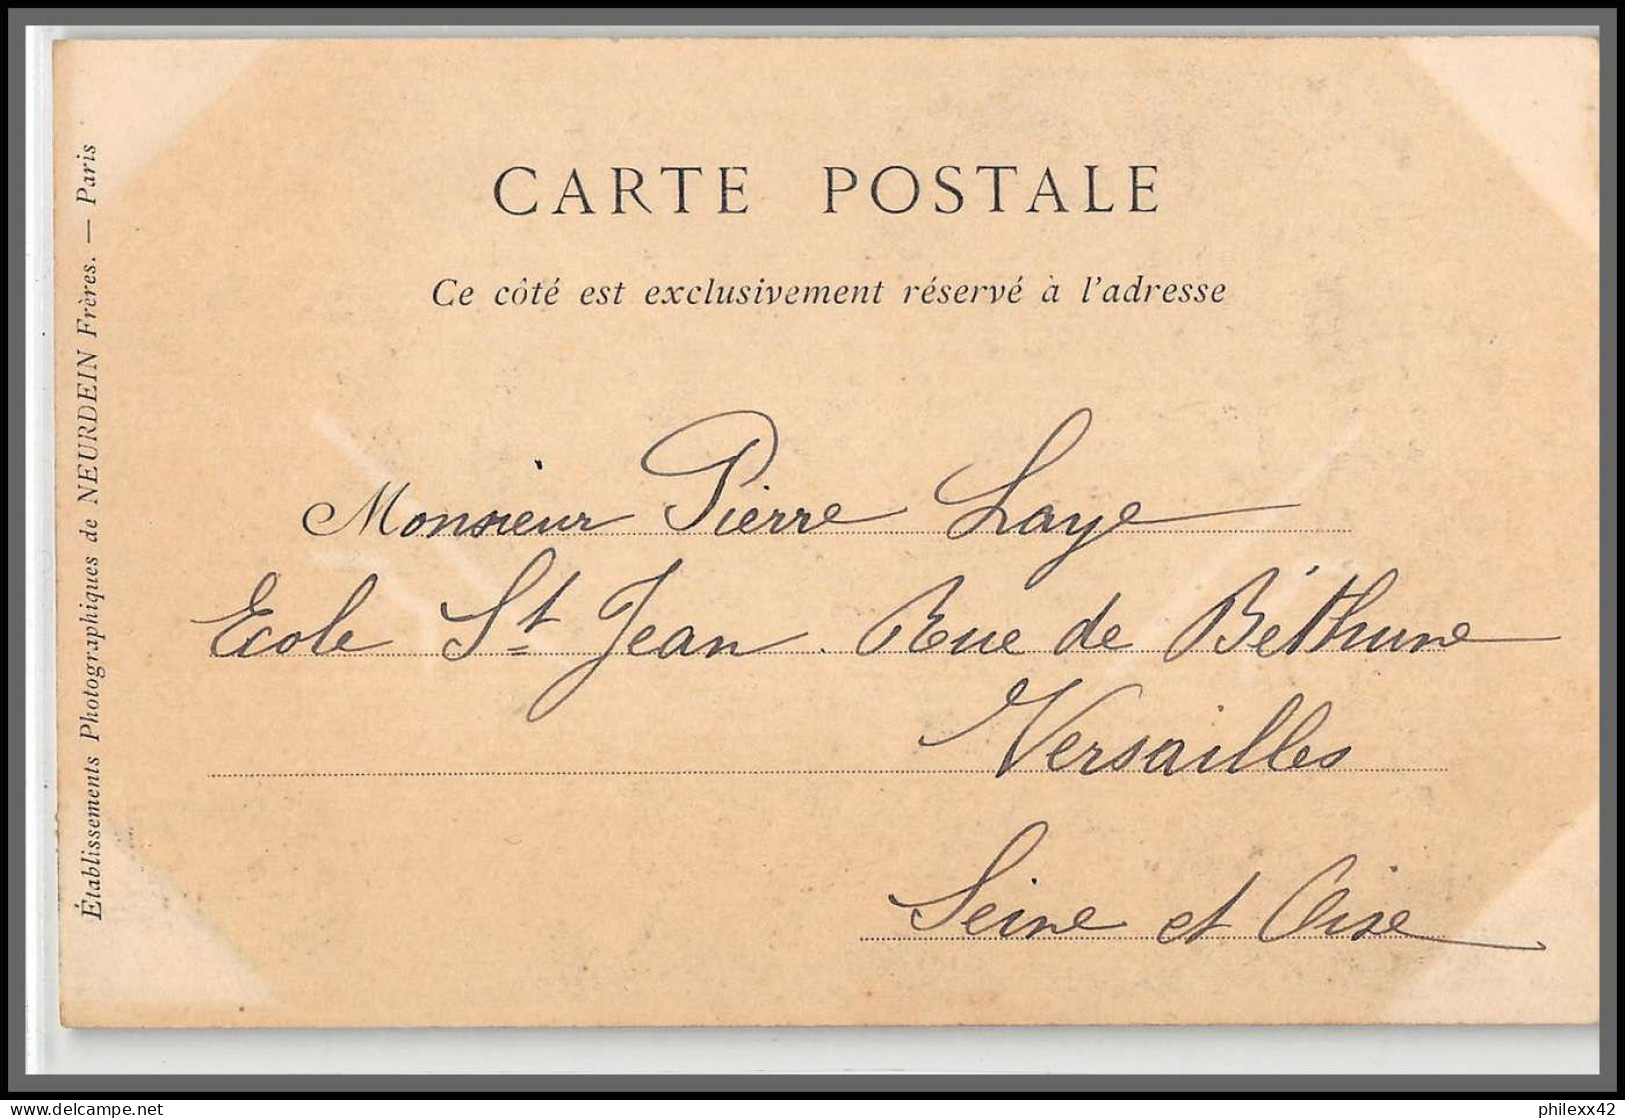 CARTE POSTALE
Ce côté est exclusivement réservé à l'adresse
Établissements Photographiques de NEURDEIN Frères. — Paris
Monsieur Pierre Laye
Ecole St Jean. Rue de Béthune
Versailles
Seine et Oise
philexx42